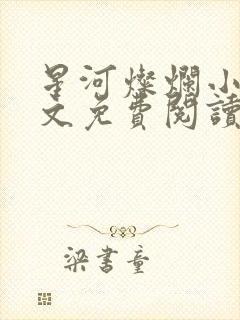 星河燦爛小
文免費閱讀
梁書童